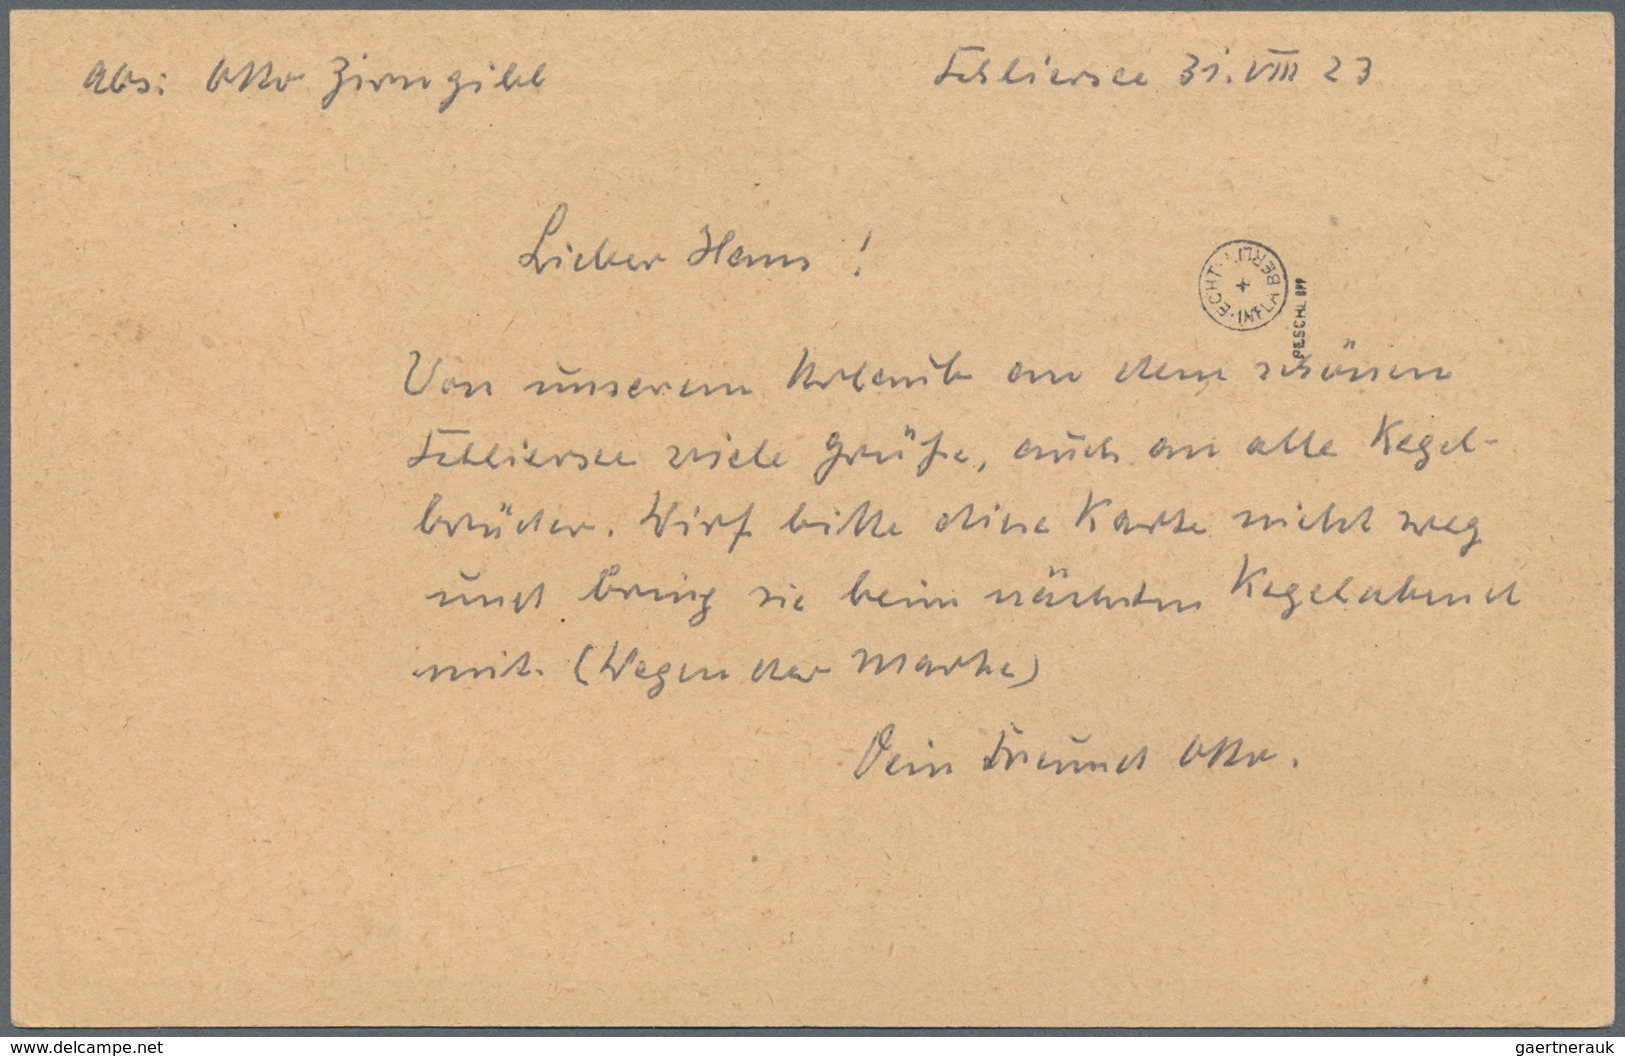 Abs: Otto Zirngibl
Schliersee 31. VIII 23
Lieber Hans!
ECHT · INFLA BERLIN ·
PESCHL BPP
Von unserem Urlaub an dem schönen
Schliersee viele Grüße, auch an alle Kegel-
brüder. Wirf bitte diese Karte nicht weg
und bring sie beim nächsten Kegelabend
mit. (Wegen der Marke)
Dein Freund Otto.
www.delcampe.net
gaertnerauk